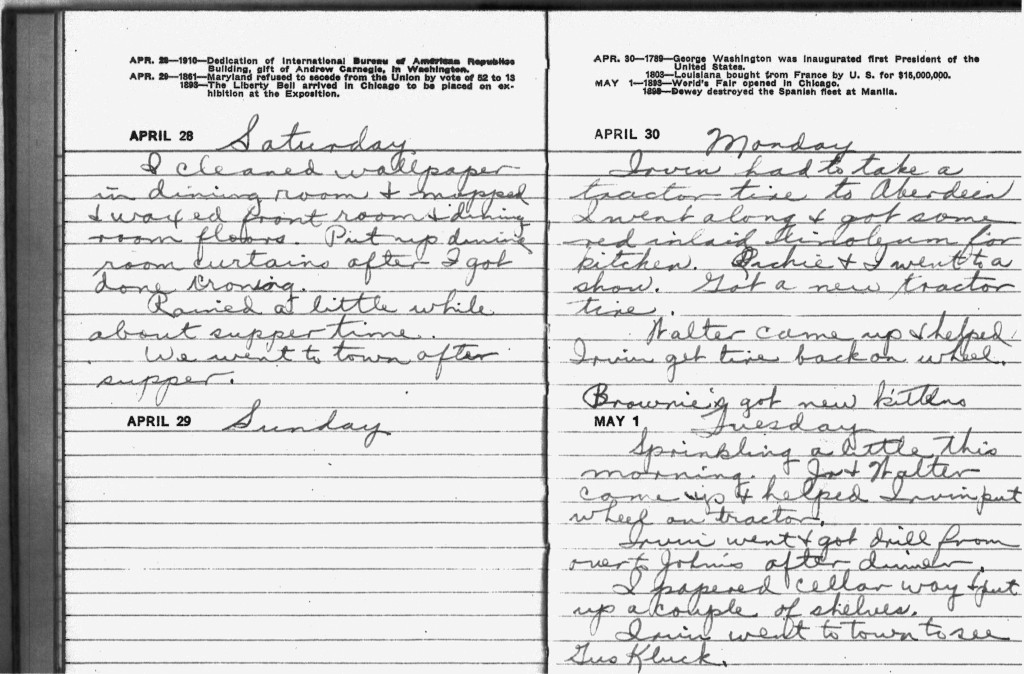 APR. 28—1910—Dedication of International Bureau of American Republics
Building, gift of Andrew Carnegie, in Washington.
APR. 29—1861—Maryland refused to secede from the Union by vote of 52 to 13
1893—The Liberty Bell arrived in Chicago to be placed on ex-
hibition at the Exposition.
APRIL 28 Saturday
I cleaned wallpaper
in dining room & mopped
& waxed front room & dining
room floors. Put up dining
room curtains after I got
done ironing.
Rained a little while
about supper time.
We went to town after
supper.
APRIL 29 Sunday
APR. 30—1789—George Washington was inaugurated first President of the
United States.
1803—Louisiana bought from France by U. S. for $15,000,000.
MAY 1—1893—World's Fair opened in Chicago.
1898—Dewey destroyed the Spanish fleet at Manila.
APRIL 30 Monday
Irvin had to take a
tractor tire to Aberdeen
I went along & got some
red inlaid linoleum for
kitchen. Richie & I went to a
show. Got a new tractor
tire.
Walter came up & helped
Irvin get tire back on wheel.
Brownie got new kittens
MAY 1 Tuesday
Sprinkling a little this
morning. Jr & Walter
came up & helped Irvin put
wheel on tractor.
Irvin went & got drill from
over to John's after dinner.
I papered cellar way & put
up a couple of shelves.
Irvin went to town to see
Gus Kluck.